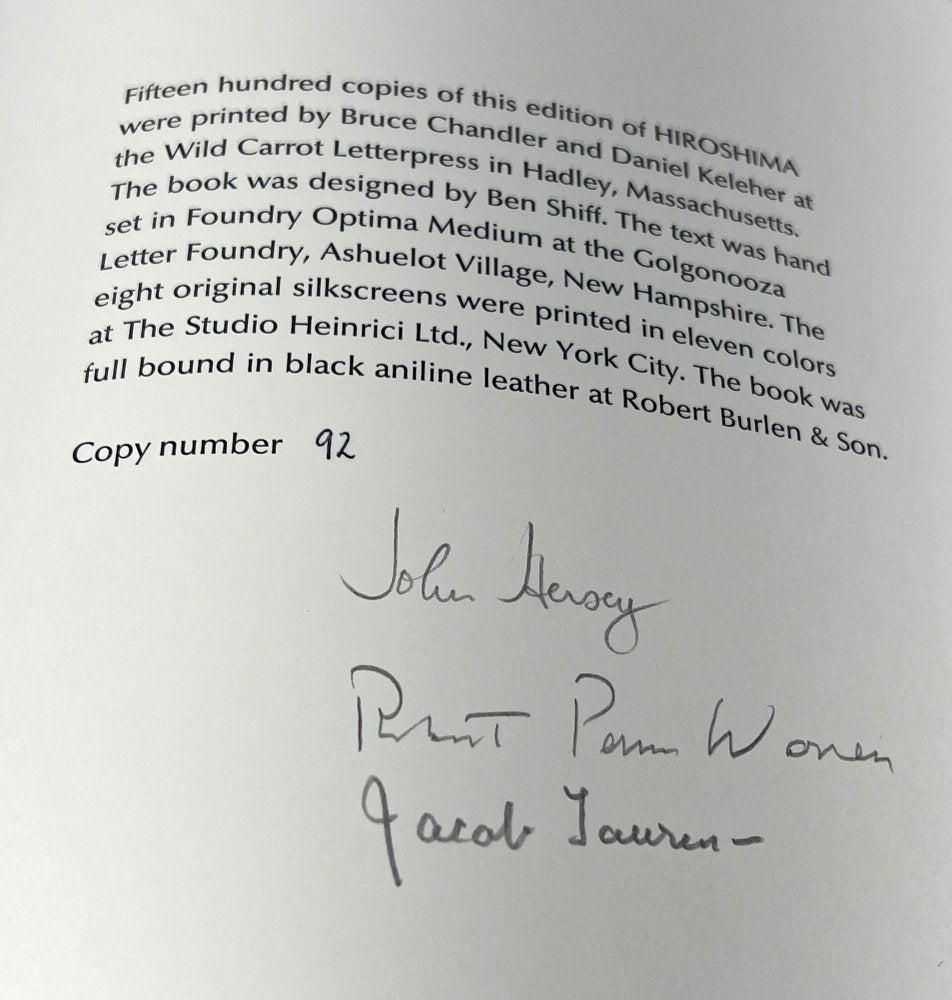 Fifteen hundred copies of this edition of HIROSHIMA
were printed by Bruce Chandler and Daniel Keleher at
the Wild Carrot Letterpress in Hadley, Massachusetts.
The book was designed by Ben Shiff. The text was hand
set in Foundry Optima Medium at the Golgonooza
Letter Foundry, Ashuelot Village, New Hampshire. The
eight original silkscreens were printed in eleven colors
at The Studio Heinrici Ltd., New York City. The book was
full bound in black aniline leather at Robert Burlen & Son.
Copy number 92
John Hersey
Robert Penn Warren
Jacob Lawrence